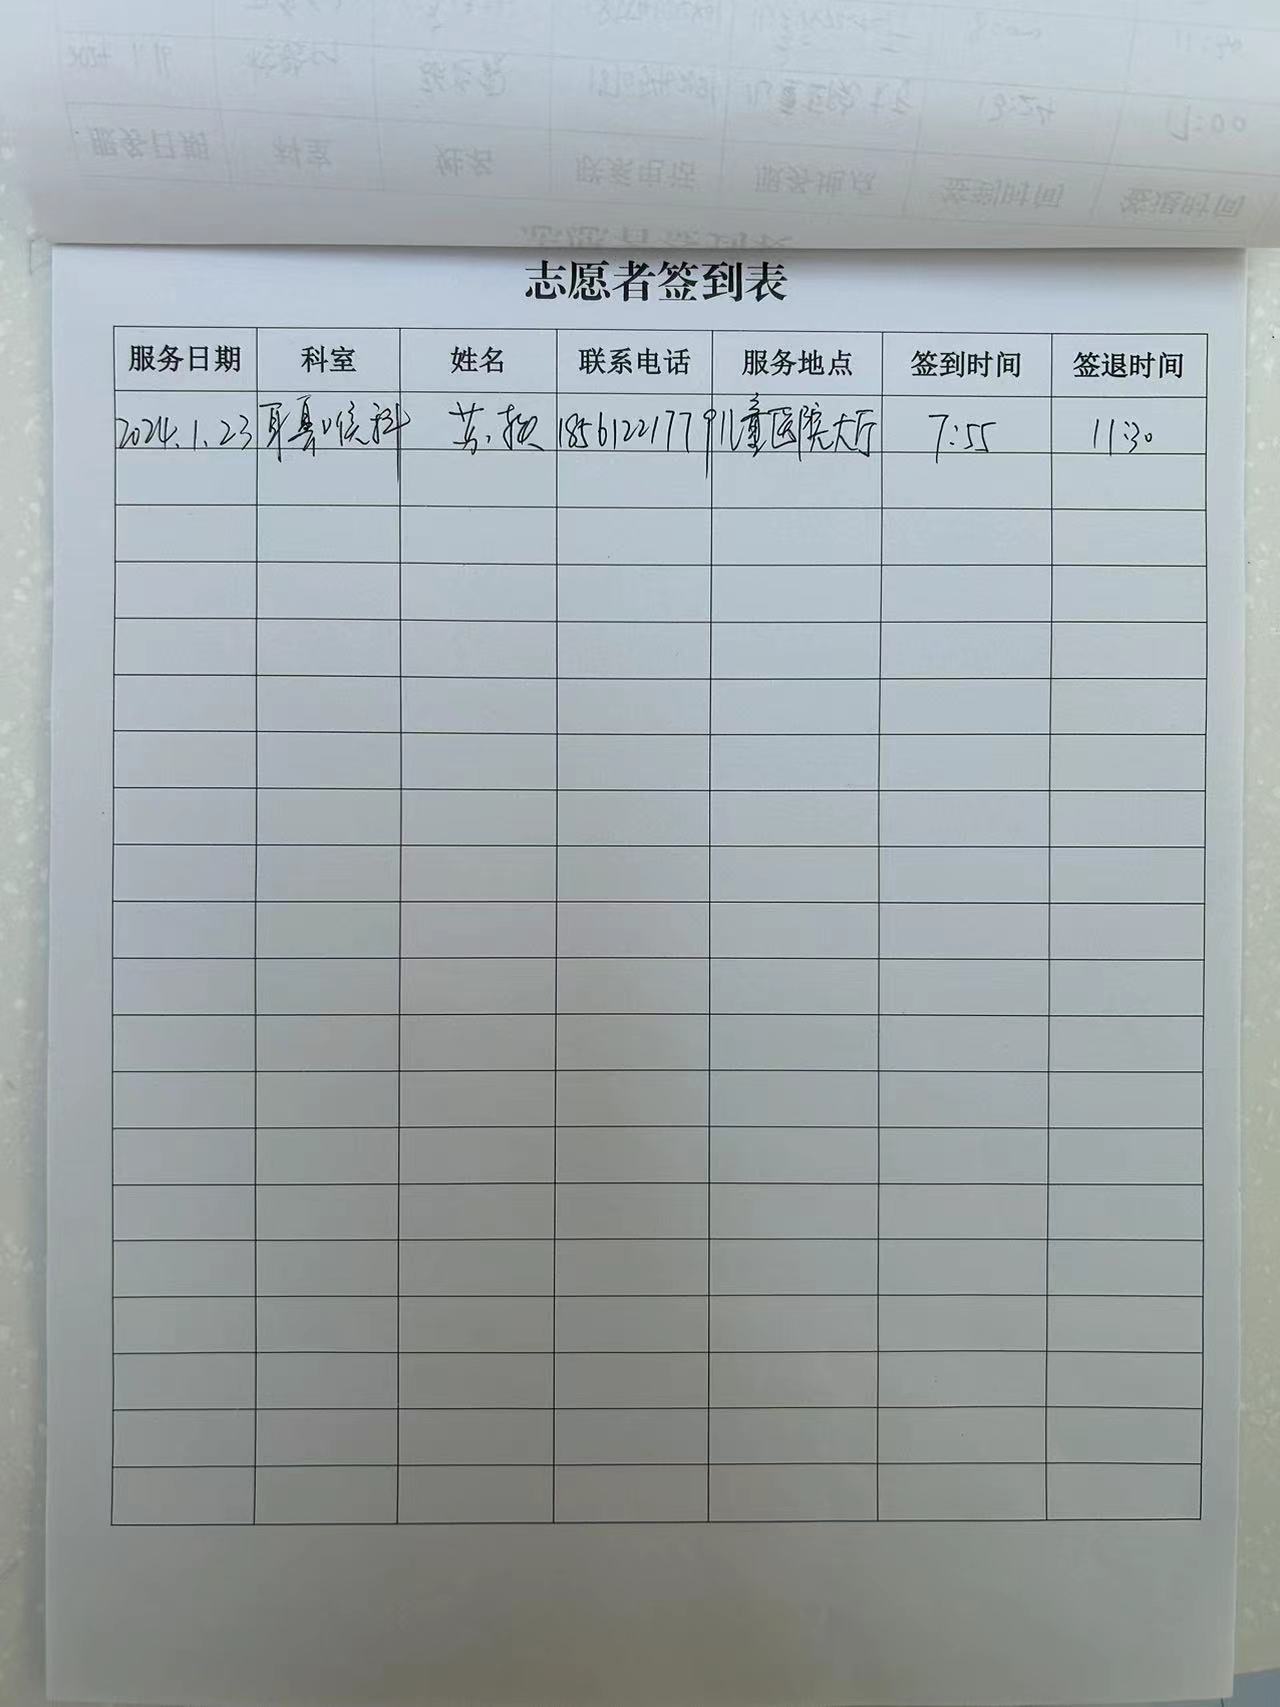 志愿者签到表
服务日期 科室 姓名 联系电话 服务地点 签到时间 签退时间
2024.1.23 耳鼻喉科 苏 18561221779 儿童医院大厅 7:55 11:30